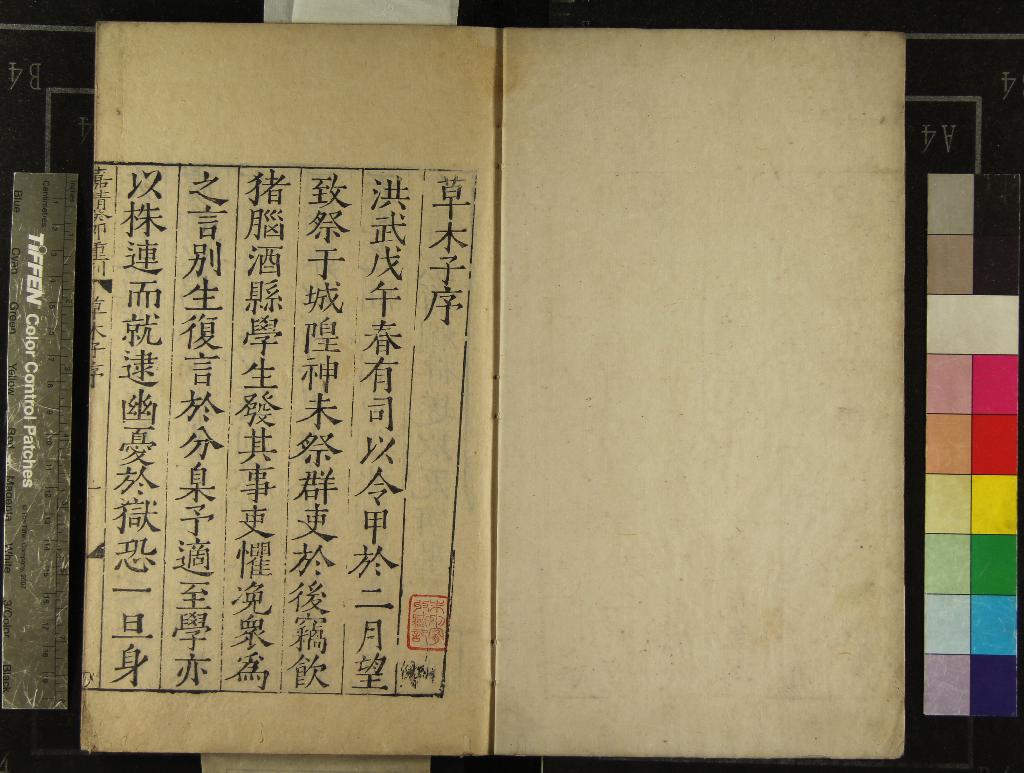 草木子序
洪武戊午春有司以令甲於二月望
致祭于城隍神未祭群吏於後竊飲
猪腦酒縣學生發其事吏懼浼衆爲
之言別生復言於分臬予適至學亦
以株連而就逮幽憂於獄恐一旦身
嘉靖癸卯重刊
草木子序
一
TIFFEN Color Control Patches
Centimetres
Blue
Cyan
Green
Yellow
Red
Magenta
White
3/Color
Black
B4
A4